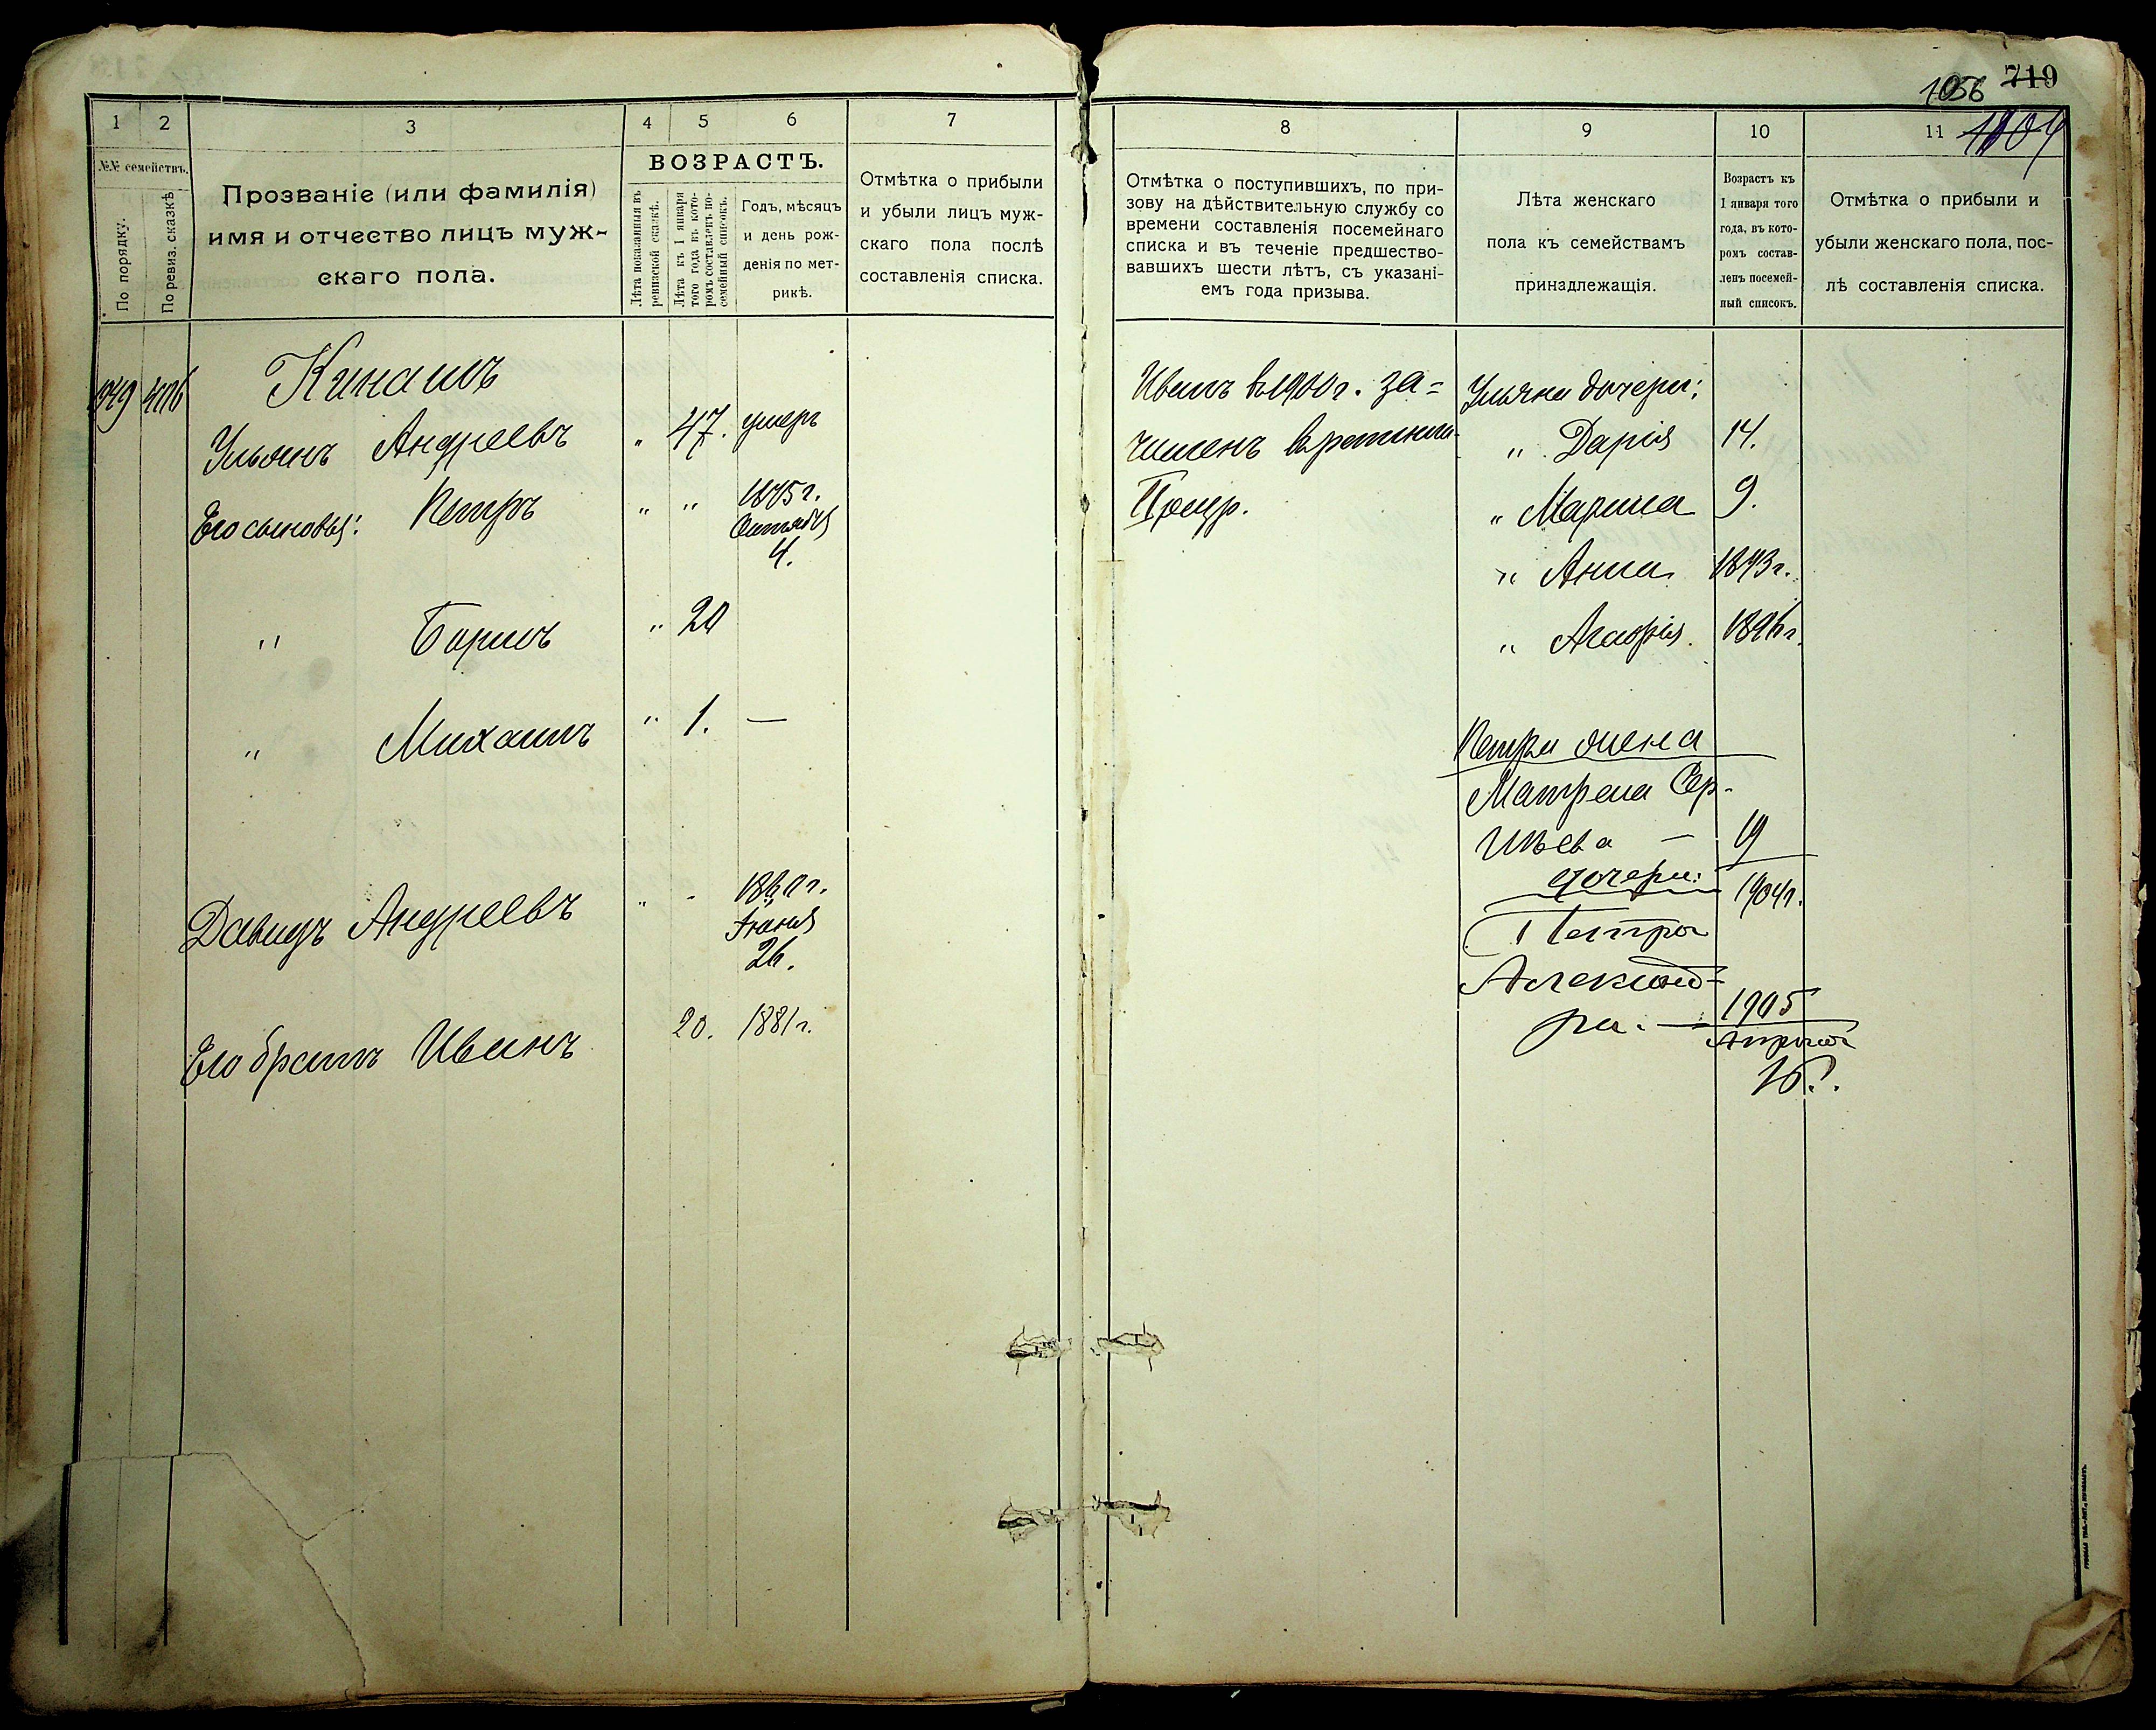 719
1056
1104
1
2
3
4
5
6
7
№№ семействъ.
По порядку.
По ревиз. сказкѣ
Прозваніе (или фамилія)
имя и отчество лицъ муж-
скаго пола.
ВОЗРАСТЪ.
Лѣта показанныя въ
ревизской сказкѣ.
Лѣта къ 1 января
того года въ кото-
ромъ составленъ по-
семейный списокъ.
Годъ, мѣсяцъ
и день рож-
денія по мет-
рикѣ.
Отмѣтка о прибыли
и убыли лицъ муж-
скаго пола послѣ
составленія списка.
Кинашъ
Ульянъ Андреевъ " 47. умеръ
Его сыновья: Петръ " " 1875 г.
Октября
4.
" Борисъ " 20
" Михаилъ " 1. —
Давидъ Андреевъ " -
Іюня
26.
Его братъ Иванъ 20. 1881 г.
8
9
10
11
Отмѣтка о поступившихъ, по при-
зову на дѣйствительную службу со
времени составленія посемейнаго
списка и въ теченіе предшество-
вавшихъ шести лѣтъ, съ указані-
емъ года призыва.
Лѣта женскаго
пола къ семействамъ
принадлежащія.
Возрастъ къ
1 января того
года, въ кото-
ромъ состав-
ленъ посемей-
ный списокъ.
Отмѣтка о прибыли и
убыли женскаго пола, пос-
лѣ составленія списка.
Иванъ въ 1900 г. за=
численъ въ ратники
Ульяна дочери:
" Дарія 14.
" Марина 9.
" Анна 1893 г.
" 1896 г.
Петра жена
Матрена Сер-
гѣева — 19
дочери: 1904 г.
Петра
Александ-
ра. — 1905
Апрѣля
16.